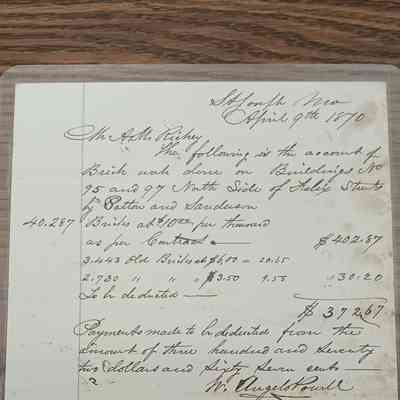 St Joseph Mo
April 9th 1870
Mr A. Mc Richey
The following is the account of
Brick work done on Buildings No
95 and 97 North Side of Felix Street
by Patton and Sanderson
40.287 Bricks at $10.00 per thousand
as per Contract — $402.87
3.443 Old Bricks at $6,00 = 20.65
2.730 " " " $3.50 9.55 30.20
To be deducted —
$ 372.67
Payments made to be deducted from the
amount of three hundred and seventy
two dollars and sixty seven cents —
W. Angelo Powell